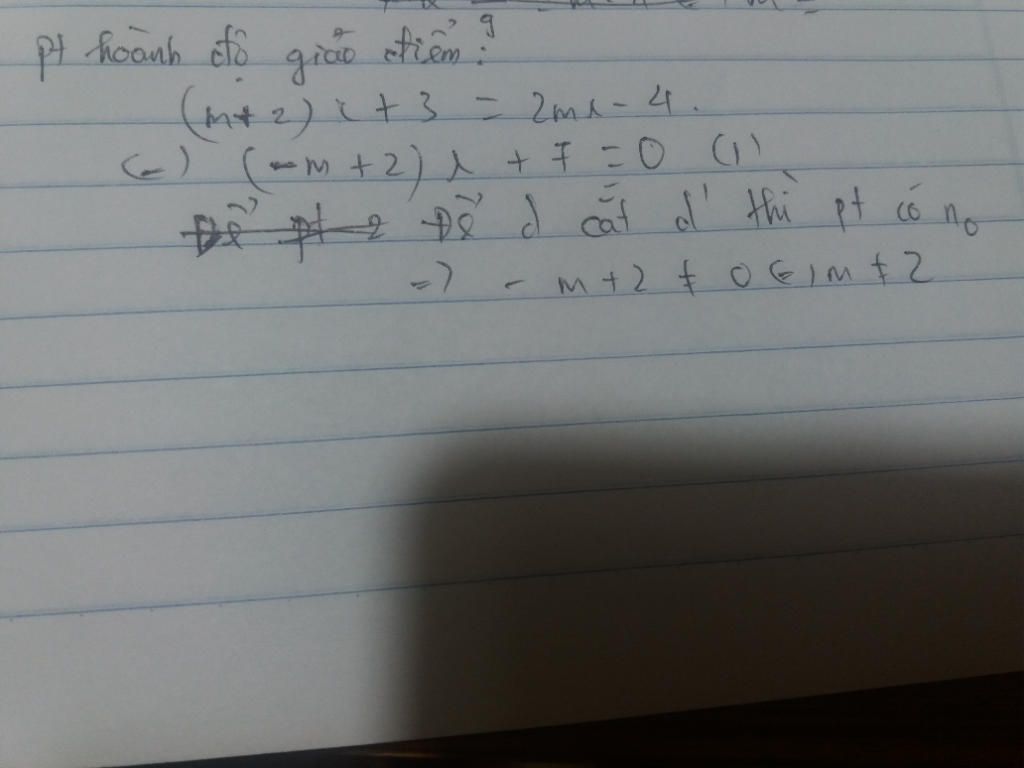 pt hoành độ giao điểm:
(m+2)x + 3 = 2mx - 4.
(=) (-m+2)x + 7 = 0 (1)
Để d cắt d' thì pt có n0
=) - m+2 ≠ 0 (=) m ≠ 2